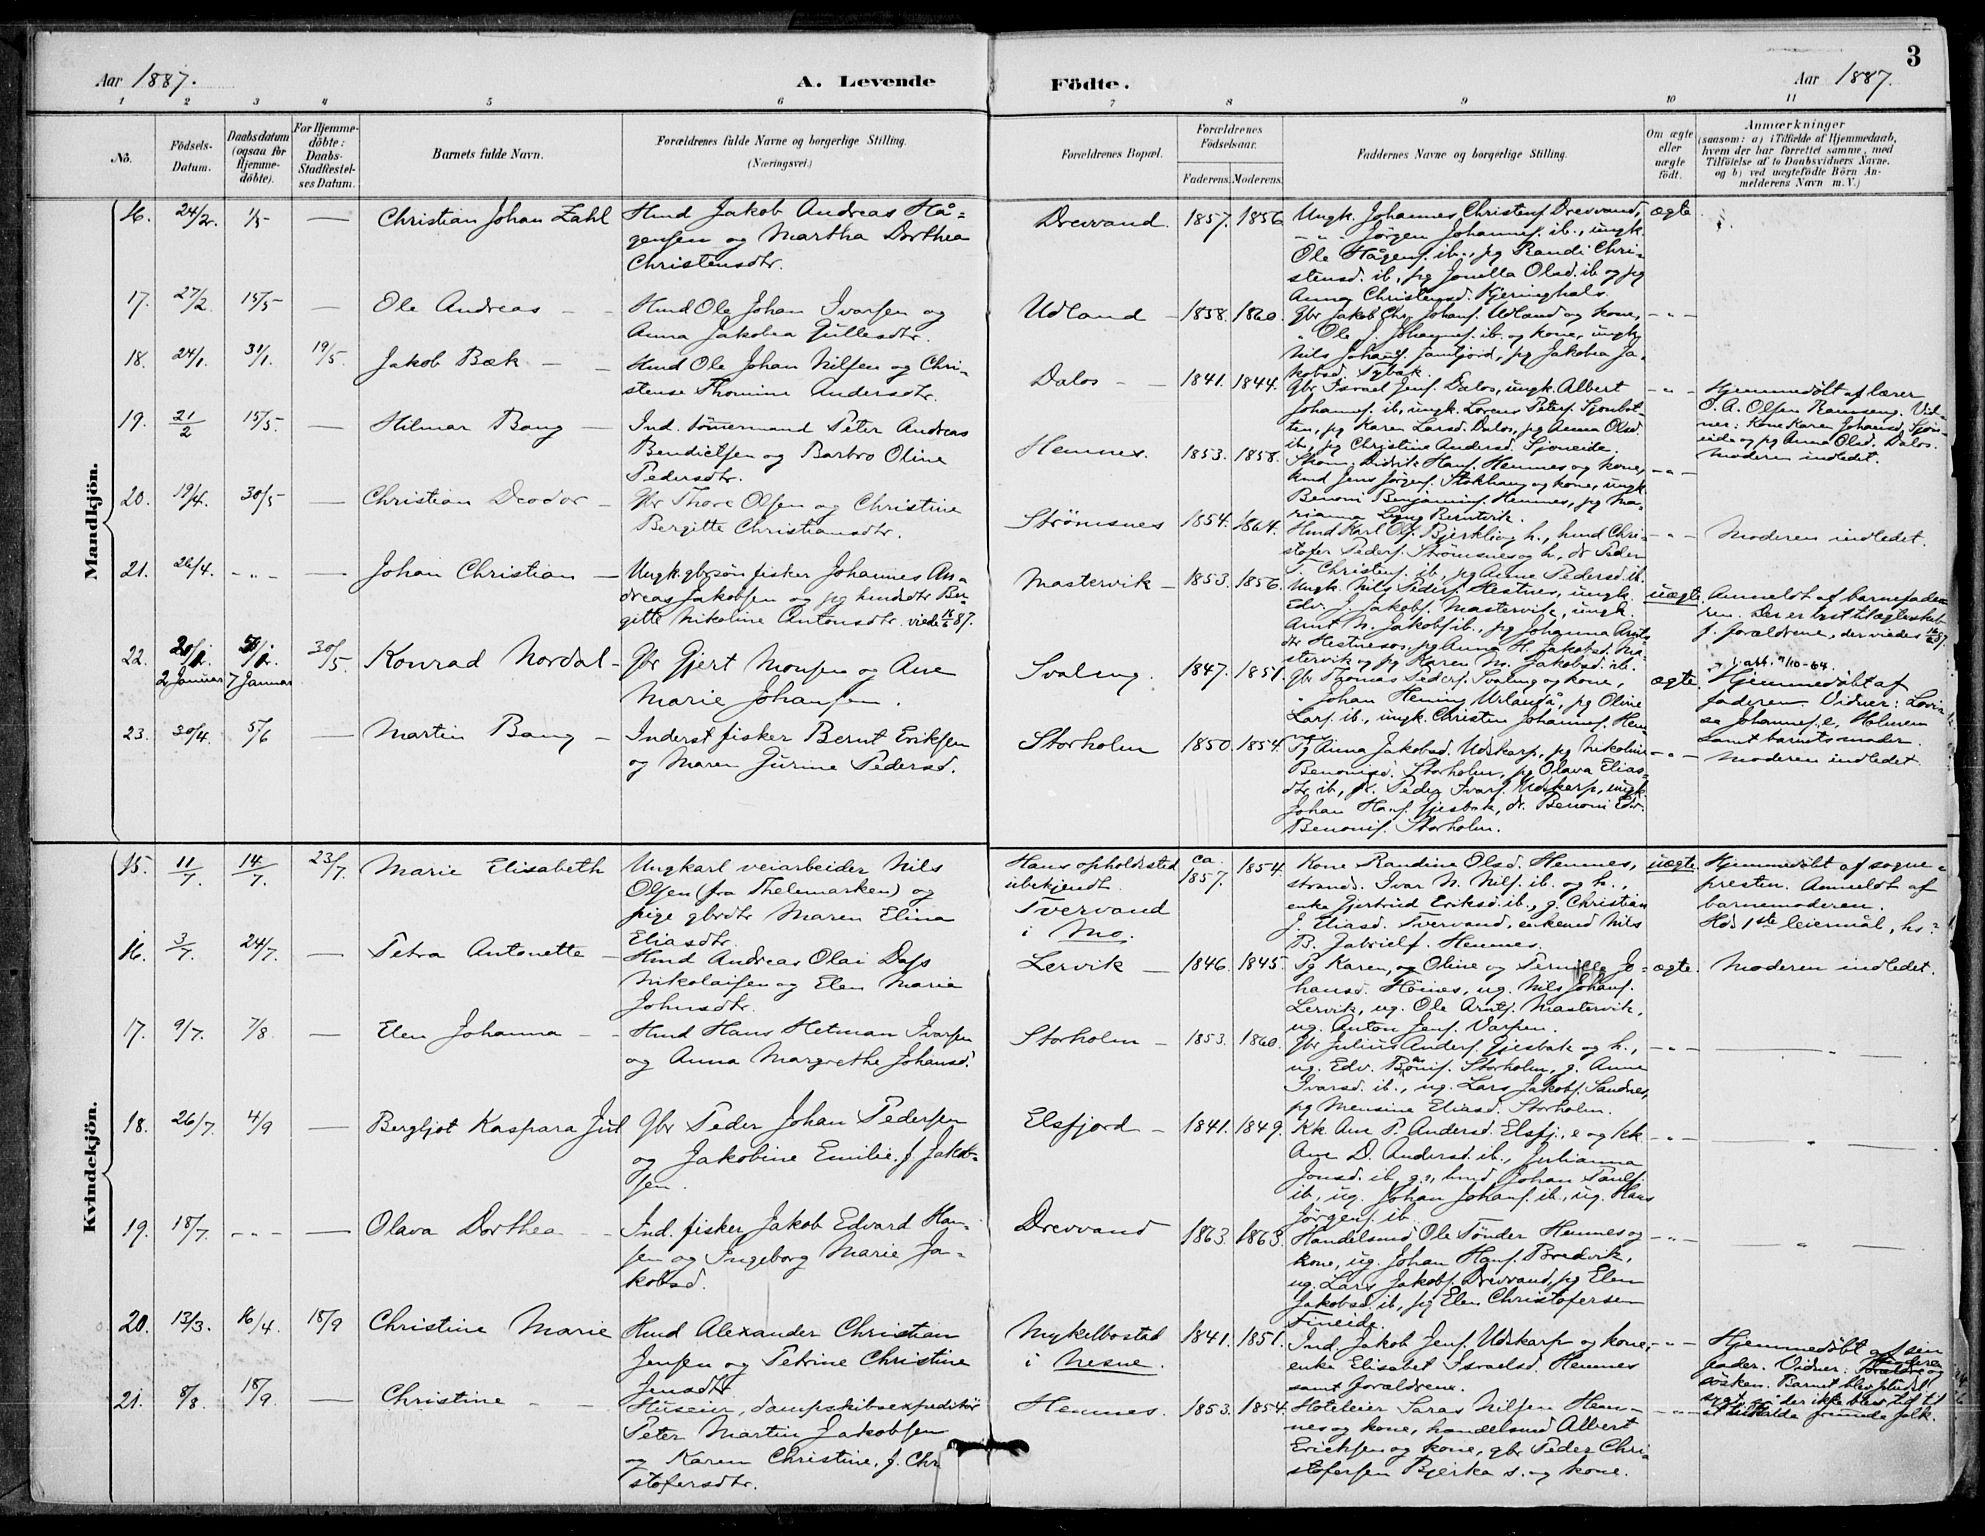 Aar 1887.
A. Levende
Födte.
Aar 1887.
3
1 2 3 4 5 6 7 8 9 10 11
No.
Födsels-
Datum.
Daabsdatum
(ogsaa for
Hjemme-
döbte).
For Hjemme-
döbte:
Daabs-
Stadfestel-
ses Datum.
Barnets fulde Navn.
Forældrenes fulde Navne og borgerlige Stilling.
(Næringsvei.)
Forældrenes Bopæl.
Forældrenes
Födselsaar.
Faderens. Moderens.
Faddernes Navne og borgerlige Stilling.
Om ægte
eller
uægte
födt.
Anmærkninger
(saasom: a) i Tilfælde af Hjemmedaab,
hvem der har forrettet samme, med
Tilföielse af to Daabsvidners Navne.
og b) ved uægtefödte Börn An-
melderens Navn m. V.)
Mandkjön.
16. 24/2. 1/5 — Christian Johan Zahl
Hmd Jakob Andreas Hå-
gensen og Martha Dorthea
Christensdtr.
Drevvand. 1857. 1856
Ungk. Johannes Christens. Drevvand,
" " Jörgen Johannes. ib., ungk.
Ole Hågens. ib., pg Randi Chri-
stensd. ib., pg Jonella Olsd. ib og pg
Anna Christensd. Kjeringhals.
ægte
17. 27/2 15/5 — Ole Andreas
Hmd Ole Johan Ivarsen og
Anna Jakobea Gullesdtr.
Udland 1858. 1860.
Gbr Jakob Chr. Johans. Udland og kone,
" Ole J. Johannes. ib. og kone, ungk
Nils Johans. Jamtjord, pg Jakobea Ja-
kobsd. Sybak.
- " -
18. 24/1. 31/1. 19/5 Jakob Bæk
Hmd Ole Johan Nilsen og Chri-
stense Thomine Andersdtr.
Dalos 1841. 1844.
Gbr Israel Jens. Dalos, ungk. Albert
Johannes. ib, ungk. Lorens Peters. Sjonbot-
ten, pg Karen Larsd. Dalos, pg Anna Olsd.
ib, pg Christine Andersd. Sjoneide.
- " -
Hjemmedöbt af lærer
O. A. Olsen Ramseng. Vid-
ner: Kone Karen Johansd. Sjon-
eide og pg Anna Olsd. Dalos.
Moderen indledet.
19. 21/2 15/5. — Hilmar Bang
Ind. tömermand Peter Andreas
Bendictsen og Barbro Oline
Pedersdtr.
Hemnes. 1853. 1858.
Skom. Didrik Hans. Hemnes og kone,
Hmd Jens Jörgens. Stokhaug og kone, ungk.
Benoni Benjamins. Hemnes, pg Ma-
rianna Lyng Berntvik.
- " -
20. 19/4. 30/5 — Christian Deodor
Gbr Thore Olsen og Christine
Bergitte Christiansdtr.
Strömsnes 1854. 1864.
Hmd Karl Ols. Bjerkling h., hmd Chri-
stofer Peders. Strömsnes og h., dr. Peder
T. Christens. ib., pg Anne Pedersd. ib.
- " -
Moderen indledet.
21. 26/4. - " - — Johan Christian
Ungk. gbrsön fisker Johannes An-
dreas Jakobsen og pg hmdsdtr Ber-
gitte Nikoline Antonsdtr. viede 16/6 87.
Mastervik 1853. 1856.
Ungk. Nils Peders. Hestnes, ungk.
Edv. J. Jakobs. Mastervik, ungk.
Arnt N. Jakobs ib., pg Johanna Arnts-
dtr Hestnesos, pg Anna H. Jakobsd. Ma-
stervik og pg Karen M. Jakobsd. ib.
uægte
Anmeldt af barnefade-
ren. Der er lyst til ægteskab
f. forældrene, der viedes 16/6 87.
22. 2 Januar 7 Januar 30/5 Konrad Nordal
Gbr Gjert Monsen og Ane
Marie Johansen.
Svaleng. 1847. 1851.
Gbr Thomas Peders. Svaleng og kone,
" Johan Hening Urlandå, pg Oline
Lars. ib., ungk. Christen Johannes. Hem-
nes
ægte
j. att. 11/10-64.
Hjemmedöbt af
faderen. Vidner: Lovi-
se Johannes. e, Holmen
samt barnets moder.
23. 30/4. 5/6 — Martin Bang
Inderst fisker Bernt Eriksen
og Maren Gurine Pedersd.
Storholm 1850. 1854.
Pg Anna Jakobsd. Udskarp, pg Nikoline
Benonisd. Storholm, pg Olava Elias-
dtr ib, dr. Peder Ivars. Udskarp, ungk.
Johan Hans. Gjesbak, dr. Benoni Edv.
Benonis. Storholm.
- " -
Moderen indledet.
Kvindekjön.
15. 11/7. 14/7. 23/7. Marie Elisabeth
Ungkarl veiarbeider Nils
Olsen (fra Thelemarken) og
pige gbrdtr Maren Elina
Eliasdtr.
Hans opholdssted
ubekjendt.
Tvervand
i Mo.
ca. 1857. 1854.
Kone Randine Olsd. Hemnes,
strands. Ivar N. Nils. ib. og h.,
enke Gjertrud Eriksd. ib., g. Christian
J. Eliasd. Tvervand, enkemd Nils
B. Gabriels. Hemnes.
uægte.
Hjemmedöbt af sogne-
presten. Anmeldt af
barnemoderen.
Hds 1ste leiermål, hs
16. 3/7. 24/7. — Petra Antonette
Hmd Andreas Olai Dass
Nikolaisen og Elen Marie
Johnsdtr.
Lervik 1846. 1845.
Pg Karen, og Oline og Pernille Jo-
hansd. Hönes, ug. Nils Johans.
Lervik, ug. Ole Arnts. Mastervik,
ug. Anton Jens. Varpen.
ægte.
Moderen indledet.
17. 9/7. 7/8 — Elen Johanna
Hmd Hans Hetman Ivarsen
og Anna Margrethe Johansd.
Storholm 1853. 1860.
Gbr Julius Anders. Gjesbak og h.,
ug. Edv. Bonis. Storholm, g. Anne
Ivarsd. ib., ug. Lars Jakobs. Sandnes,
pg Mensine Eliasd. Storholm.
- " -
"
18. 26/7. 4/9 — Bergljot Kaspara Jul
Gbr Peder Johan Pedersen
og Jakobine Emilie. f. Jakob-
sen.
Elsfjord 1841. 1849.
Kk Ane P. Andersd. Elsfj., e og kk
Ane D. Andersd. ib., Julianna
Jonsd. ib, g., hmd Johan Pauls.
ib., ug. Johan Johans. ib., ug. Hans
Jörgens. ib.
- " -
"
19. 18/7. - " - — Olava Dorthea
Ind. fisker Jakob Edvard Han-
sen og Ingeborg Marie Ja-
kobsd.
Drevvand 1863. 1863.
Handelsmd Ole Tönder Hemnes og
kone, ug. Johan Hans. Bredvik,
ug. Lars Jakobs. Drevvand, pg Elen
Jakobsd. ib, pg Elen Christofersen
Fineide.
- " -
"
20. 13/3. 16/4. 18/9 Christine Marie
Hmd Alexander Christian
Jensen og Petrine Christine
Jensdtr.
Mykelbostad
i Nesne. 1841. 1851.
Ind. Jakob Jens. Udskarp og kone,
enke Elisabet Israelsd. Hemnes
samt forældrene.
- " -
Hjemmedöbt af sin
fader. Vidner:
sösken. Barnet blev pludsel.
sygt, i der ikke blev tid til
at tilkalde fremede folk.
21. 8/8. 18/9. Christine
Huseier, dampskibsexpeditör
Peter Martin Jakobsen
og Karen Christine, f. Chri
stofersdtr.
Hemnes. 1853. 1854.
Hoteleier Saras Nilsen Hem-
nes og kone, handelsmd Albert
Ericksen og kone, gbr Peder Chri-
stofersen Bjerka s. og kone.
- " -